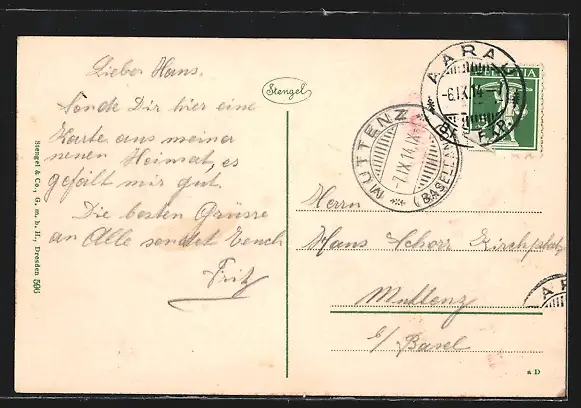 Lieber Hans.
Sende Dir hier eine
Karte aus meiner
neuen Heimat, es
gefält mir gut.
Die besten Grüsse
an Alle sendet Euch
Fritz
Stengel
Stengel & Co., G. m. b. H., Dresden 596
AARAU
-6.IX.14-
HELVETIA
MUTTENZ
-7.IX.14.IX-
(BASELLAND)
Herrn
Hans Schorr Kirchplatz
Muttenz
b/ Basel
AAR
a D